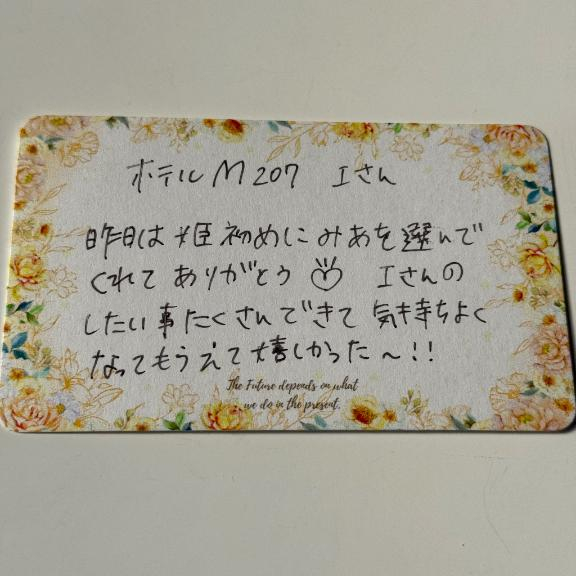 ホテルM 207 Iさん
昨日は姫初めにみあを選んで
くれてありがとう♡ Iさんの
したい事たくさんできて気持ちよく
なってもらえて嬉しかった~!!
The Future depends on what
we do in the present.